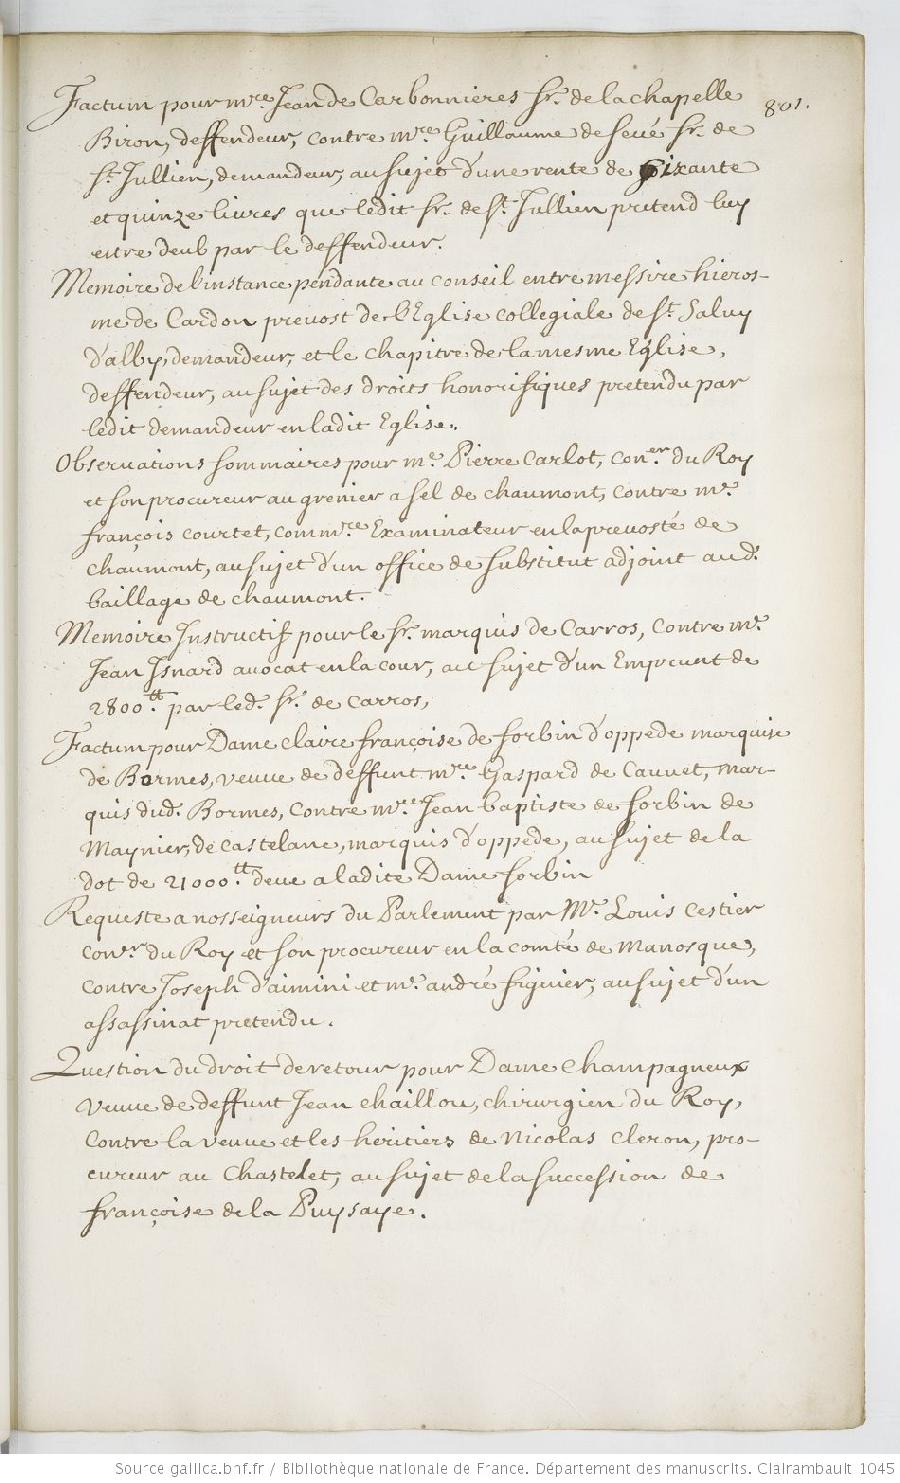 Factum pour mre Jean de Carbonnieres sr. de la chapelle
801.
Biron, deffendeur, contre mre Guillaume de Sevé sr. de
st. Jullien, demandeur, au sujet d'une rente de Sixante
et quinze livres que ledit sr. de st. Jullien pretend luy
estre deub par le deffendeur.
Memoire de l'instance pendante au conseil entre messire hieros-
me de Cardon prevost de l'Eglise collegiale de st. Salvy
d'alby, demandeur, et le chapitre de la mesme Eglise,
deffendeur, au sujet des droits honorifiques pretendu par
ledit demandeur en ladit Eglise.
Observations sommaires pour me. Pierre Carlot, coner. du Roy
et son procureur au grenier a sel de chaumont, contre me.
françois courtet, commre Examinateur en la prevosté de
chaumont, au sujet d'un office de substitut adjoint aud.
baillage de chaumont.
Memoire Instructif pour le sr. marquis de Carros, contre me.
Jean Isnard avocat en la cour, au sujet d'un Emprunt de
2800tt. par led. sr. de Carros,
Factum pour Dame claire françoise de forbin d'oppede marquise
de Bormes, veuve de deffunt mre Gaspard de Cauvet, mar-
quis dud. Bormes, contre mre Jean baptiste de forbin de
Maynier, de castelane, marquis d'oppede, au sujet de la
dot de 21000tt. deue a ladite Dame forbin
Requeste a nosseigneurs du Parlement par Me. Louis Cestier
coner du Roy et son procureur en la comté de Manosque,
contre Joseph d'aimini et me. andré figuier, au sujet d'un
assassinat pretendu.
Question du droit de retour pour Dame Champagneux
veuve de deffunt Jean chaillou, chirurgien du Roy,
contre la veuve et les heritiers de Nicolas Cleron, pro-
cureur au Chastelet, au sujet de la succession de
françoise de la Puysaye.
Source gallica.bnf.fr / Bibliothèque nationale de France. Département des manuscrits. Clairambault 1045